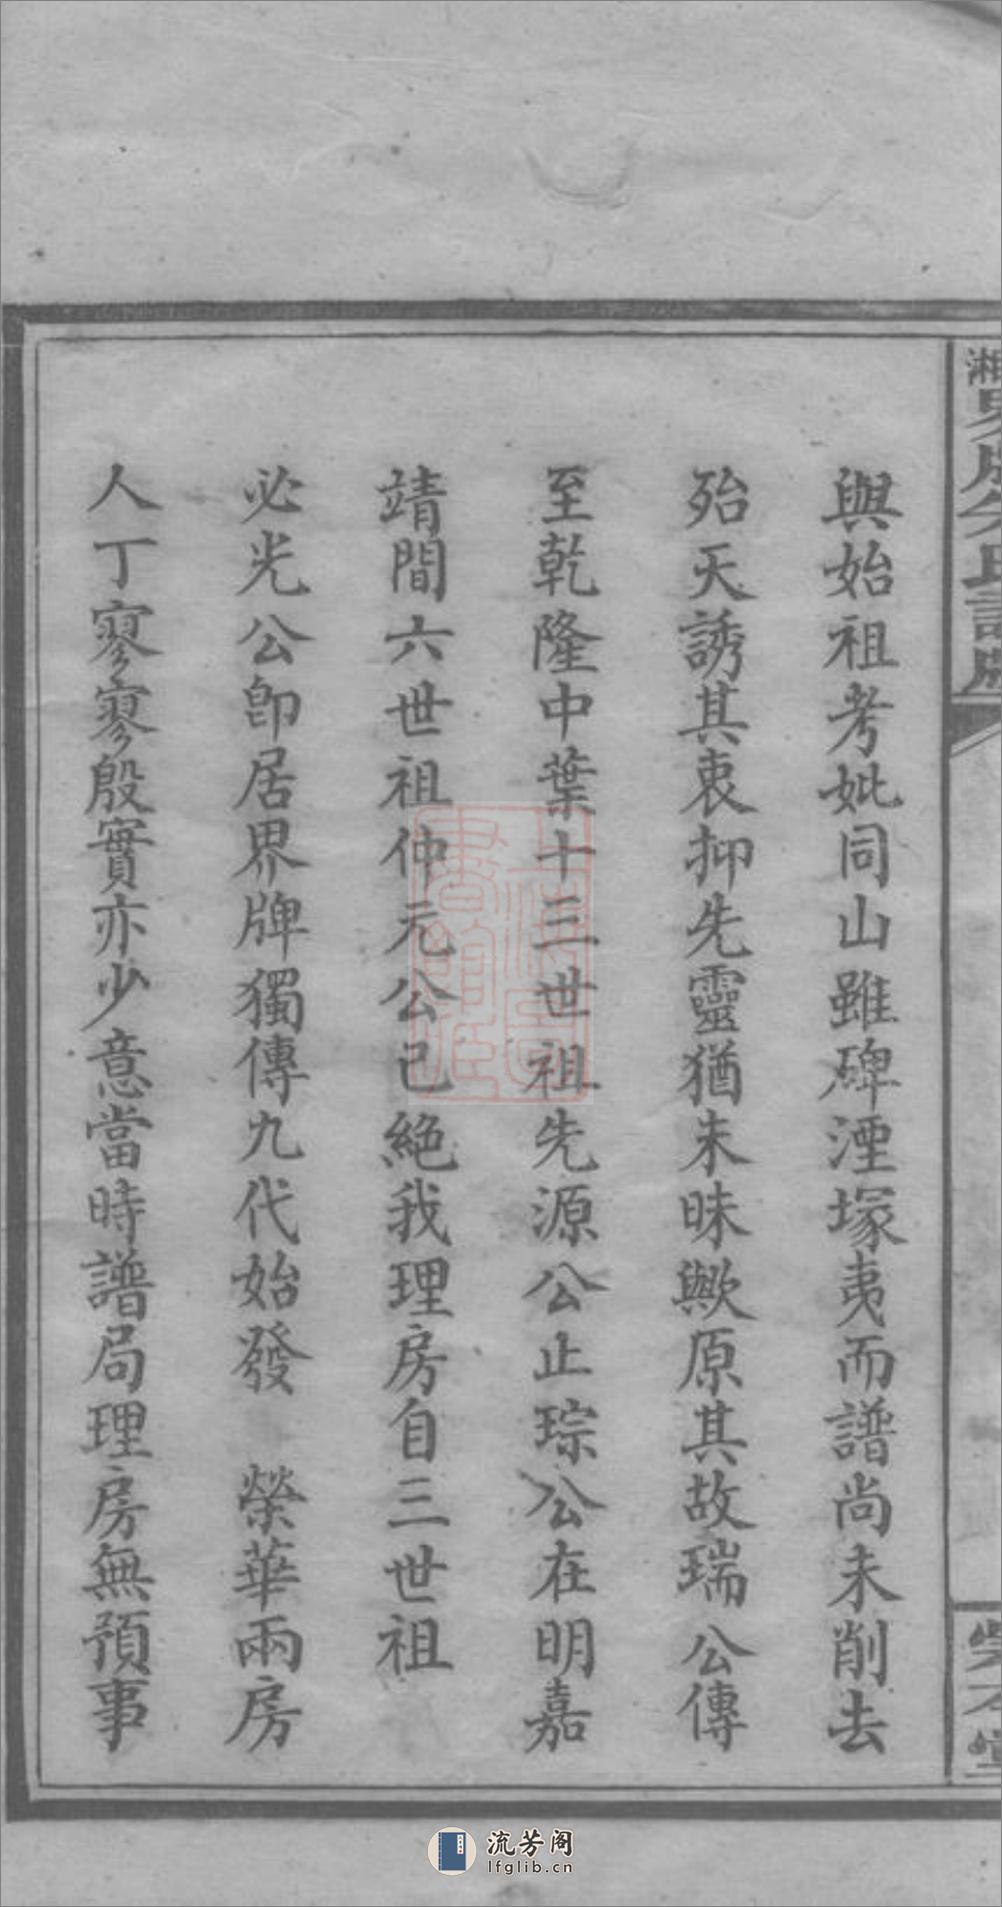 與始祖考妣同山雖碑湮塚夷而譜尚未削去
殆天誘其衷抑先靈猶未昧歟原其故瑞公傳
至乾隆中葉十三世祖先源公止琮公在明嘉
靖間六世祖仲元公已絕我理房自三世祖
必光公卽居界牌獨傳九代始發　榮華兩房
人丁寥寥殷實亦少意當時譜局理房無預事
上海圖書館藏
流芳阁
lfglib.cn